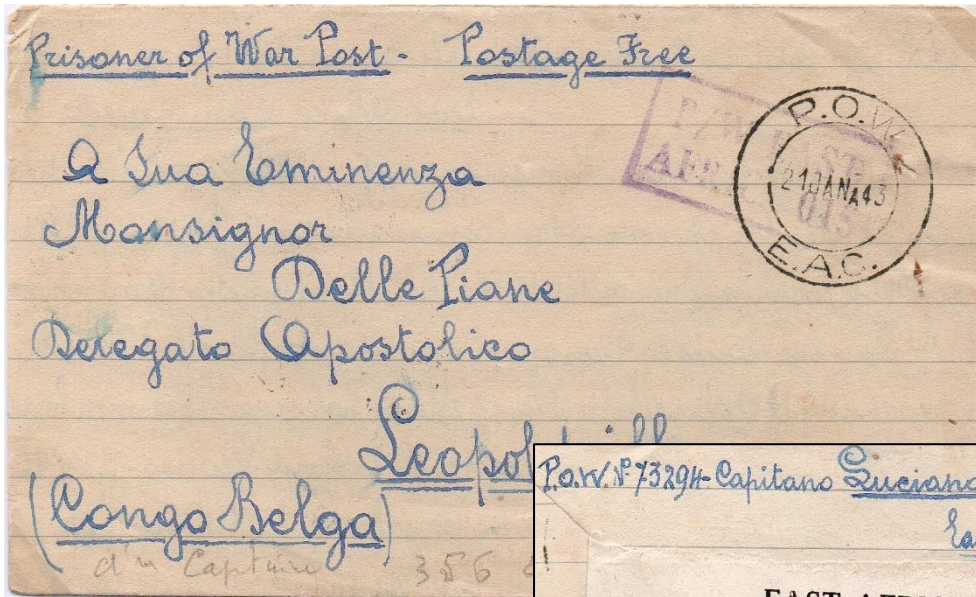 Prisoner of War Post - Postage Free
P/W EAST
AFR
015
P.O.W.
21 JAN A 43
E.A.C.
A Sua Eminenza
Monsignor
Delle Piane
Delegato Apostolico
Leopol
(Congo Belga)
d'un Capitaine 356
P.O.W. N° 73294 - Capitano Luciano
Ea
EAST AFRI